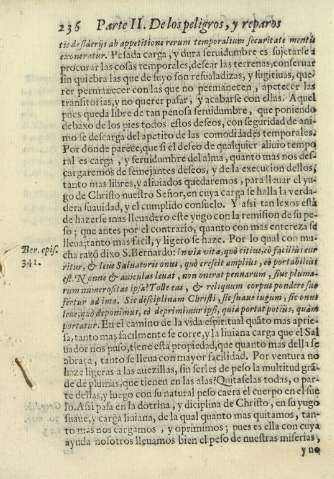 236 Parte II. De los peligros, y reparos
tis desiderijs ab appetitione rerum temporalium securitate mentis
exoneratur. Pesada carga, y dura seruidumbre es sujetarse a
procurar las cosas temporales, desear las terrenas, conseruar
sin quiebra las que de suyo son resualadizas, y fugitiuas, que
rer permanecer con las que no permanecen, apetecer las
transitorias, y no querer pasar, y acabarse con ellas. Aquel
pues queda libre de tan penosa seruidumbre, que poniendo
debaxo de los pies todos estos deseos, con seguridad de ani
mo se descarga del apetito de las comodidades temporales.
Por donde parece, que si el deseo de qualquier aliuio tempo
ral es carga, y seruidumbre del alma, quanto mas nos des
cargaremos de semejantes deseos, y de la execucion dellos,
tanto mas libres, y aliuiados quedaremos, para lleuar el yu
go de Christo nuestro Señor, en cuya carga se halla la verda-
dera suauidad, y el cumplido consuelo. Y asi tan lexos está
de hazerse mas lleuadero este yugo con la remision de su pe
so; que antes por el contrario, quanto con mas entereza se
lleua; tanto mas facil, y ligero se haze. Por lo qual con mu
Ber. epis.
341.
cha razó dixo S. Bernardo:
portatur. En el camino de la vida espiritual quáto mas aprie-
sa, tanto mas facilmente se corre, y la liuiana carga que el Sal
uador nos puso, tiene esta propiedad, que quanto mas della se
abraça, tanto se lleua con mayor facilidad. Por ventura no
haze ligeras a las auezillas, sin serles de peso la multitud grã
de de plumas, que tienen en las alas? Quitaselas todas, o par-
te dellas, y luego con su natural peso caera el cuerpo en el sue
lo. Asi pasa en la dotrina, y diciplina de Christo, en su yugo
suaue, y carga liuiana, de la qual quanto mas quitamos, tan-
to mas nos cargamos, y oprimimos; pues es ella con cuya
ayuda nosotros lleuamos bien el peso de nuestras miserias,
y no